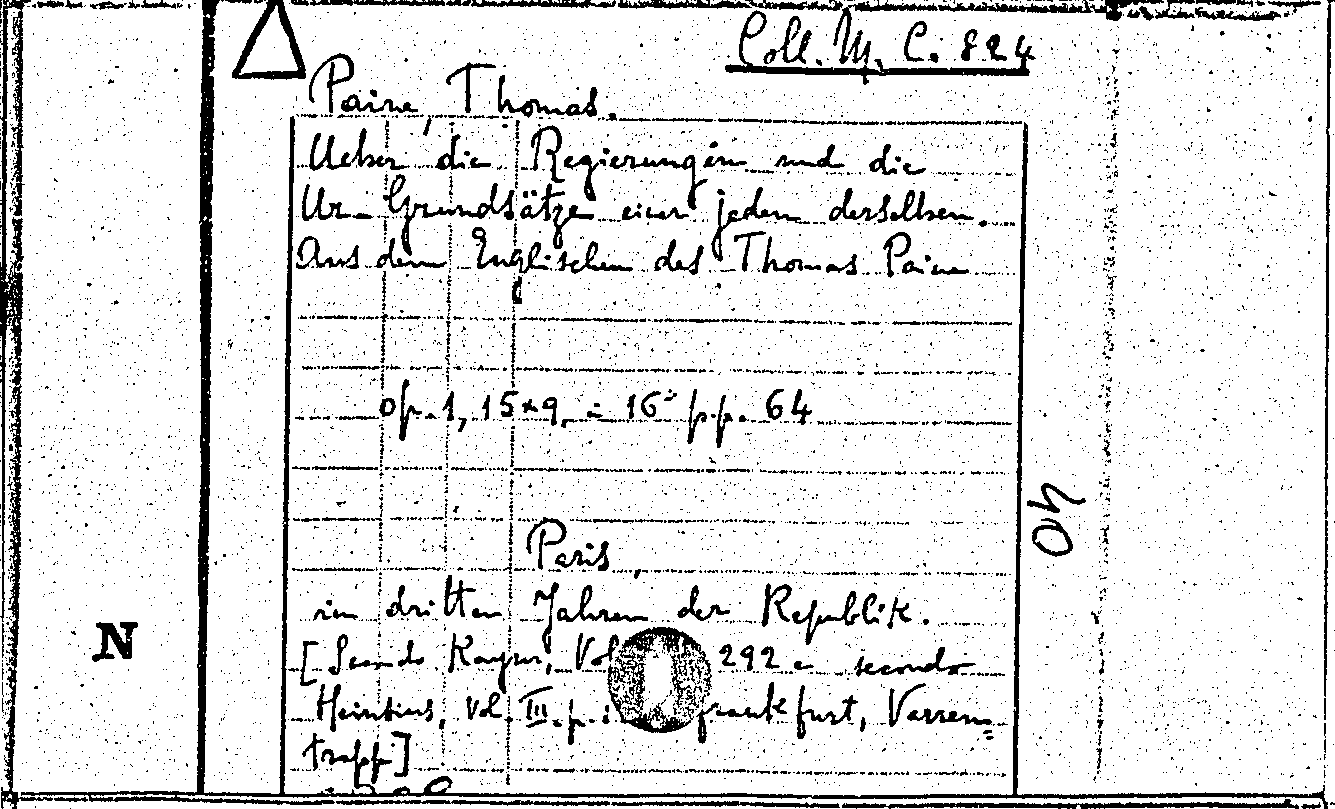 Coll. M. C. 824
Paine, Thomas.
Ueber die Regierungen und die
Ur-Grundsätze einer jeden derselben.
Aus dem Englischen des Thomas Paine
op. 1, 15×9, in 16° pp. 64
40
Paris,
im dritten Jahren der Republik.
N
[Secondo Kayser, Vol 292 e secondo
Heinsius, Vol. III. p. Frankfurt, Varren=
trapp]